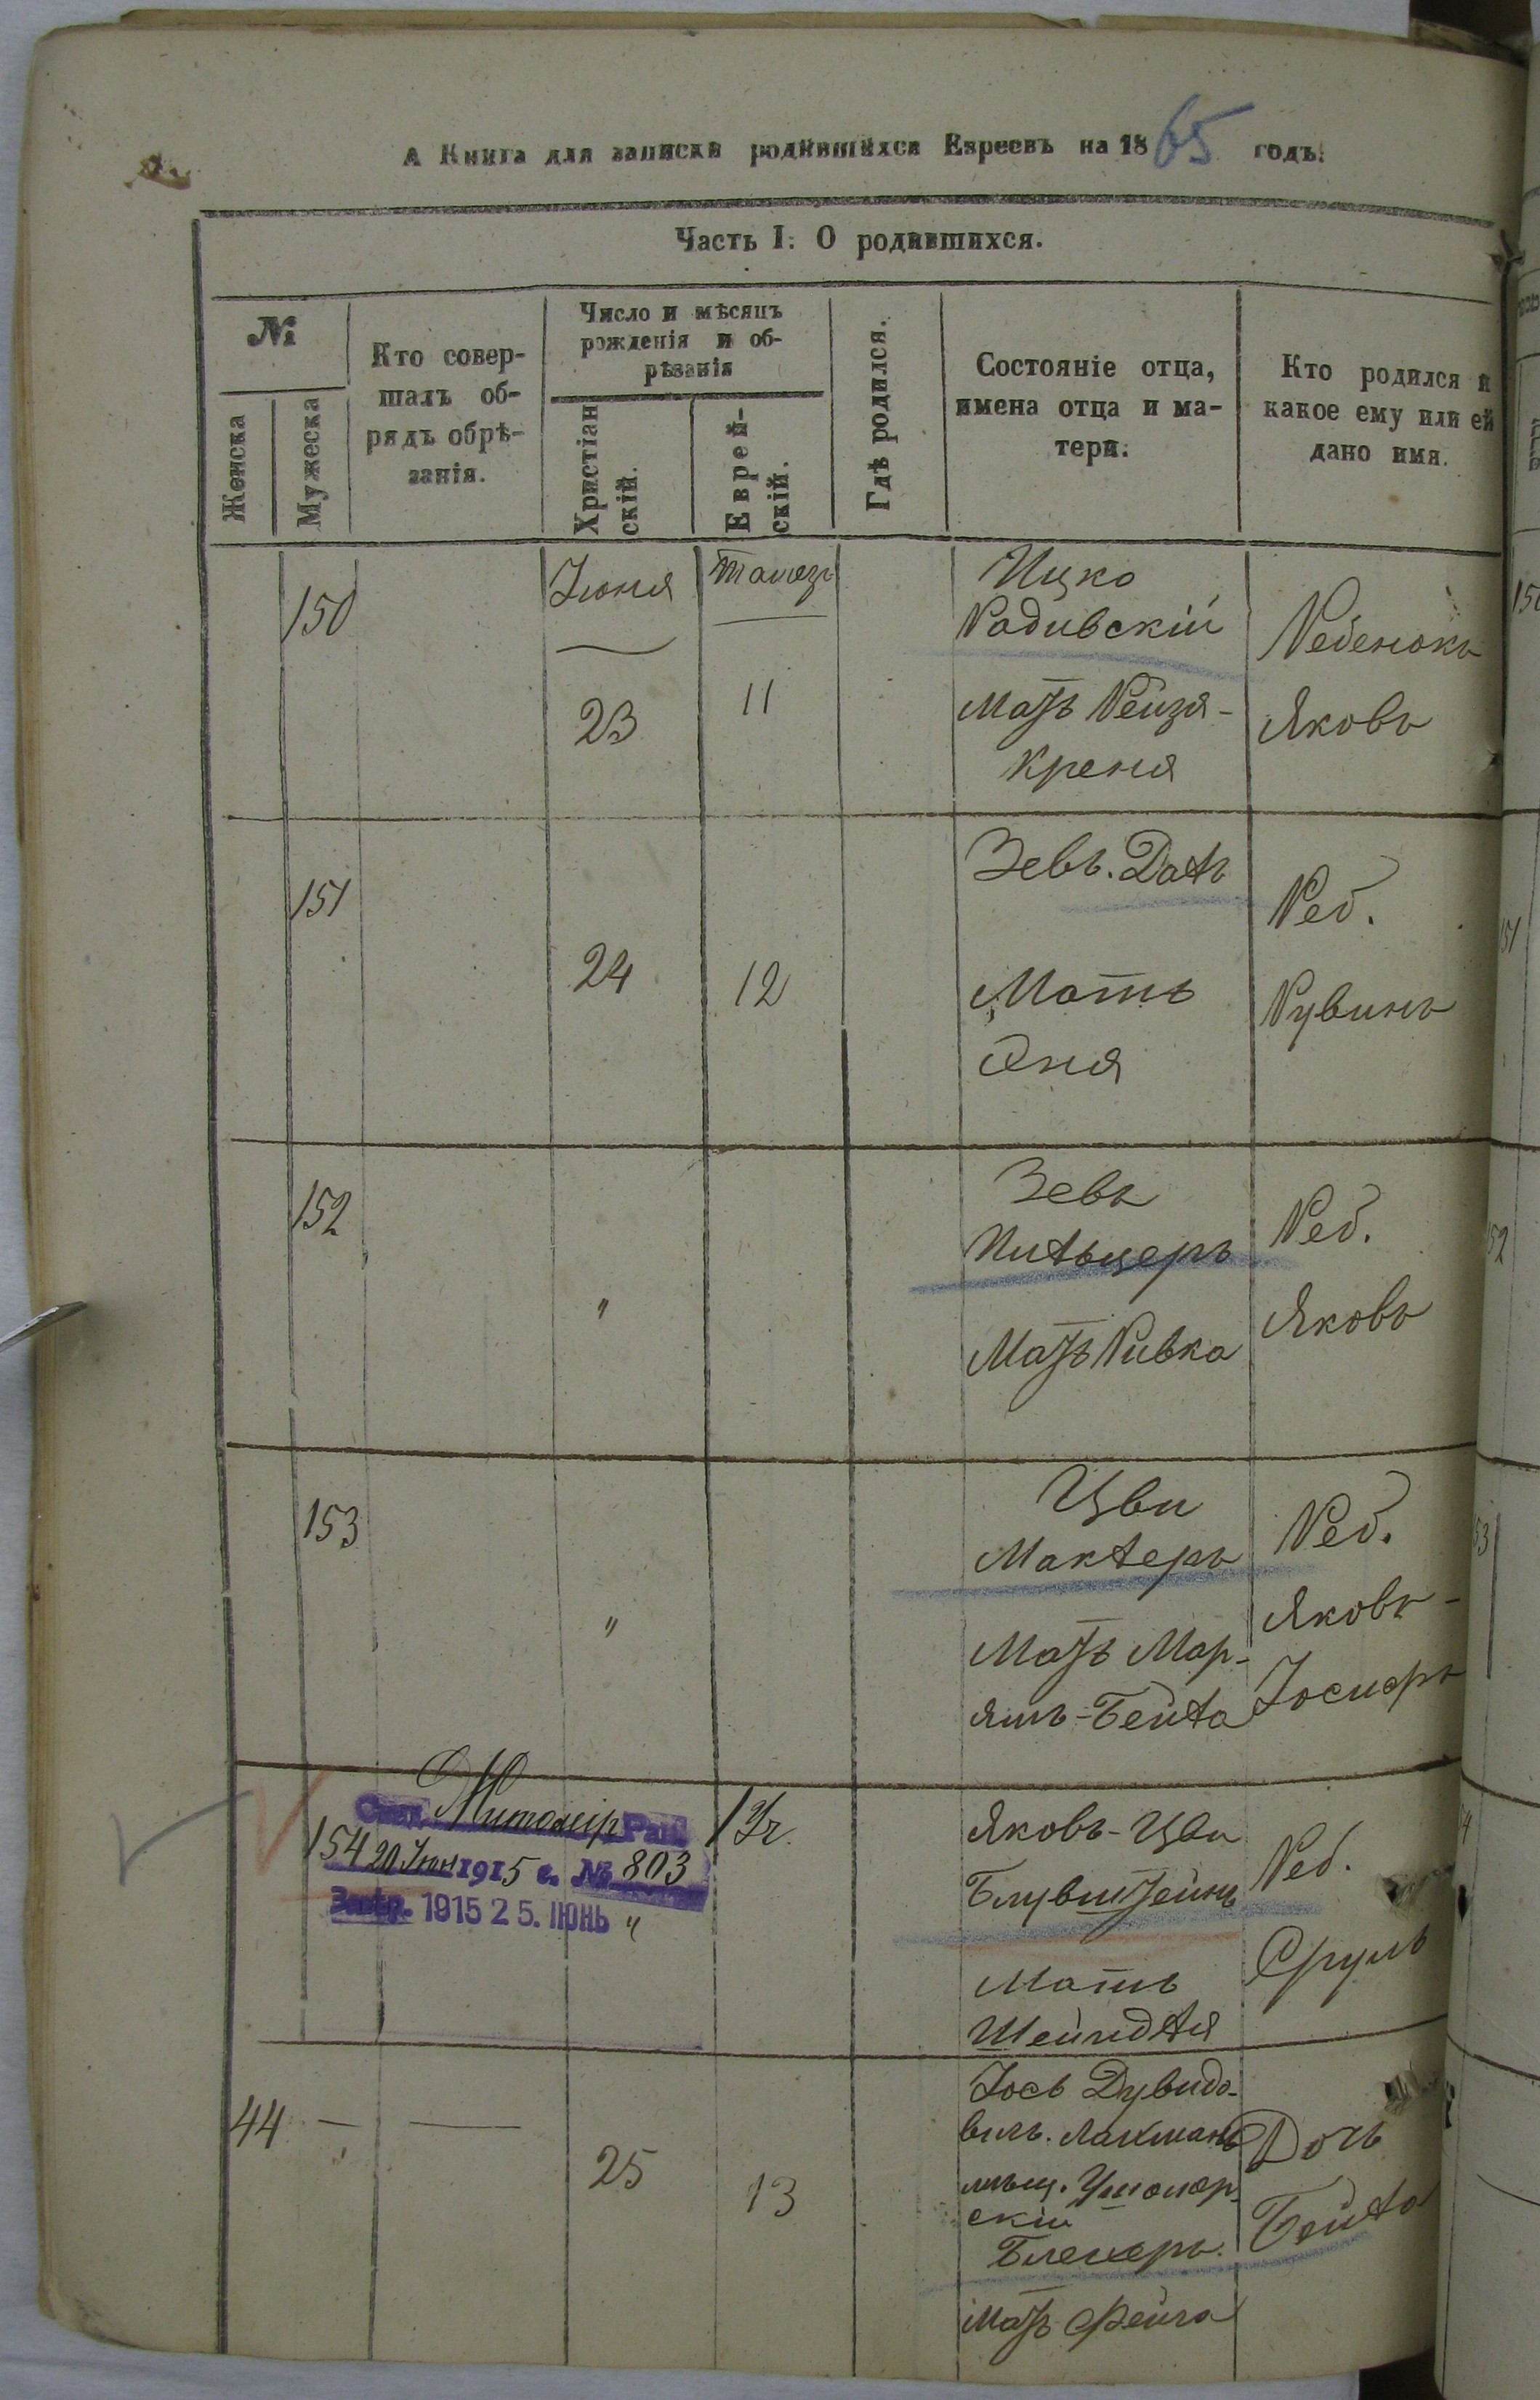 А Книга для записки родившихся Евреевъ на 1865 годъ.
Часть I. О родившихся.
№
Женска
Мужеска
Кто совер-
шалъ об-
рядъ обрѣ-
занія.
Число и мѣсяцъ
рожденія и об-
рѣзанія
Христіан
скій.
Еврей-
скій.
Гдѣ родился.
Состояніе отца,
имена отца и ма-
тери.
Кто родился и
какое ему или ей
дано имя.
150
Іюня
23
Тамуз
11
Ицко
Радивскій
Мать Рейзя-
Креня
Ребенокъ
Яковъ
151
24
12
Зевъ. Датъ
Мать
Реб.
Рувинъ
152
"
Зевъ
Мать Ривка
Реб.
Яковъ
153
"
Цви
Маклеръ
Мать Мар-
ямъ-Бейла
Реб.
Яковъ-
Іосифъ
154
Житомір Рав.
20 Іюн 1915 г. № 803
1915 25. ІЮНЬ
"
Яковъ-Цви
Блувштейнъ
Мать
Шейндля
Реб.
Сруль
44
25
13
Іось Дувидо-
вичъ. Лахманъ
мѣщ.
скій
Блехеръ.
Мать Фейга
Дочь
Бейла